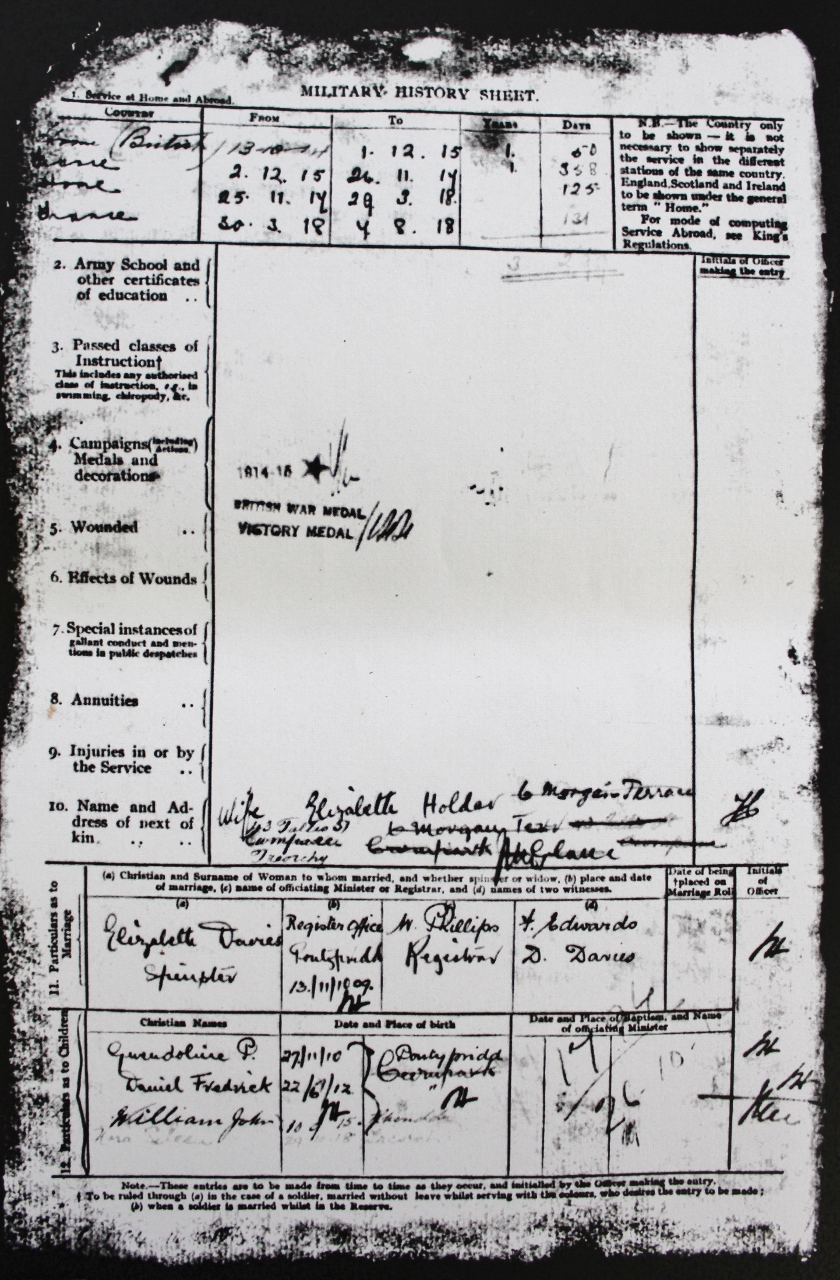 MILITARY HISTORY SHEET.
1. Service at Home and Abroad.
COUNTRY FROM TO YEARS DAYS
Home (British) 13 1. 12. 15 1. 50
France 2. 12. 15 26. 11. 17 1. 358
Home 25. 11. 17 29 3. 18. 125
France 30. 3. 18 4 8. 18 131
N.B.—The Country only
to be shown — it is not
necessary to show separately
the service in the different
stations of the same country.
England, Scotland and Ireland
to be shown under the general
term "Home."
For mode of computing
Service Abroad, see King's
Regulations.
Initials of Officer
making the entry
2. Army School and
other certificates
of education ..
3. Passed classes of
Instruction†
This includes any authorised
class of instruction, e.g., in
swimming, chiropody, &c.
4. Campaigns (including Actions)
Medals and
decorations
1914-15 ★
BRITISH WAR MEDAL
VICTORY MEDAL
5. Wounded ..
6. Effects of Wounds
7. Special instances of
gallant conduct and men-
tions in public despatches
8. Annuities ..
9. Injuries in or by
the Service ..
10. Name and Ad-
dress of next of
kin .. ..
Wife Elizabeth Holder 6 Morgan Terrace
6 Morgan Terr
Treorchy Cwmpark
11. Particulars as to Marriage
(a) Christian and Surname of Woman to whom married, and whether spinster or widow, (b) place and date
of marriage, (c) name of officiating Minister or Registrar, and (d) names of two witnesses.
Date of being
†placed on
Marriage Roll
Initials
of
Officer
(a) (b) (c) (d)
Elizabeth Davies Register Office W. Phillips F. Edwards
Spinster Pontypridd Registrar D. Davies
13/11/1909.
12. Particulars as to Children
Christian Names Date and Place of birth Date and Place of Baptism, and Name
of officiating Minister
Gwendoline P. 27/11/10 Pontypridd
Cwmpark
Daniel Fredrick 22/6/12 "
William John 10 15
Note.—These entries are to be made from time to time as they occur, and initialled by the Officer making the entry.
† To be ruled through (a) in the case of a soldier, married without leave whilst serving with the colours, who desires the entry to be made;
(b) when a soldier is married whilst in the Reserve.